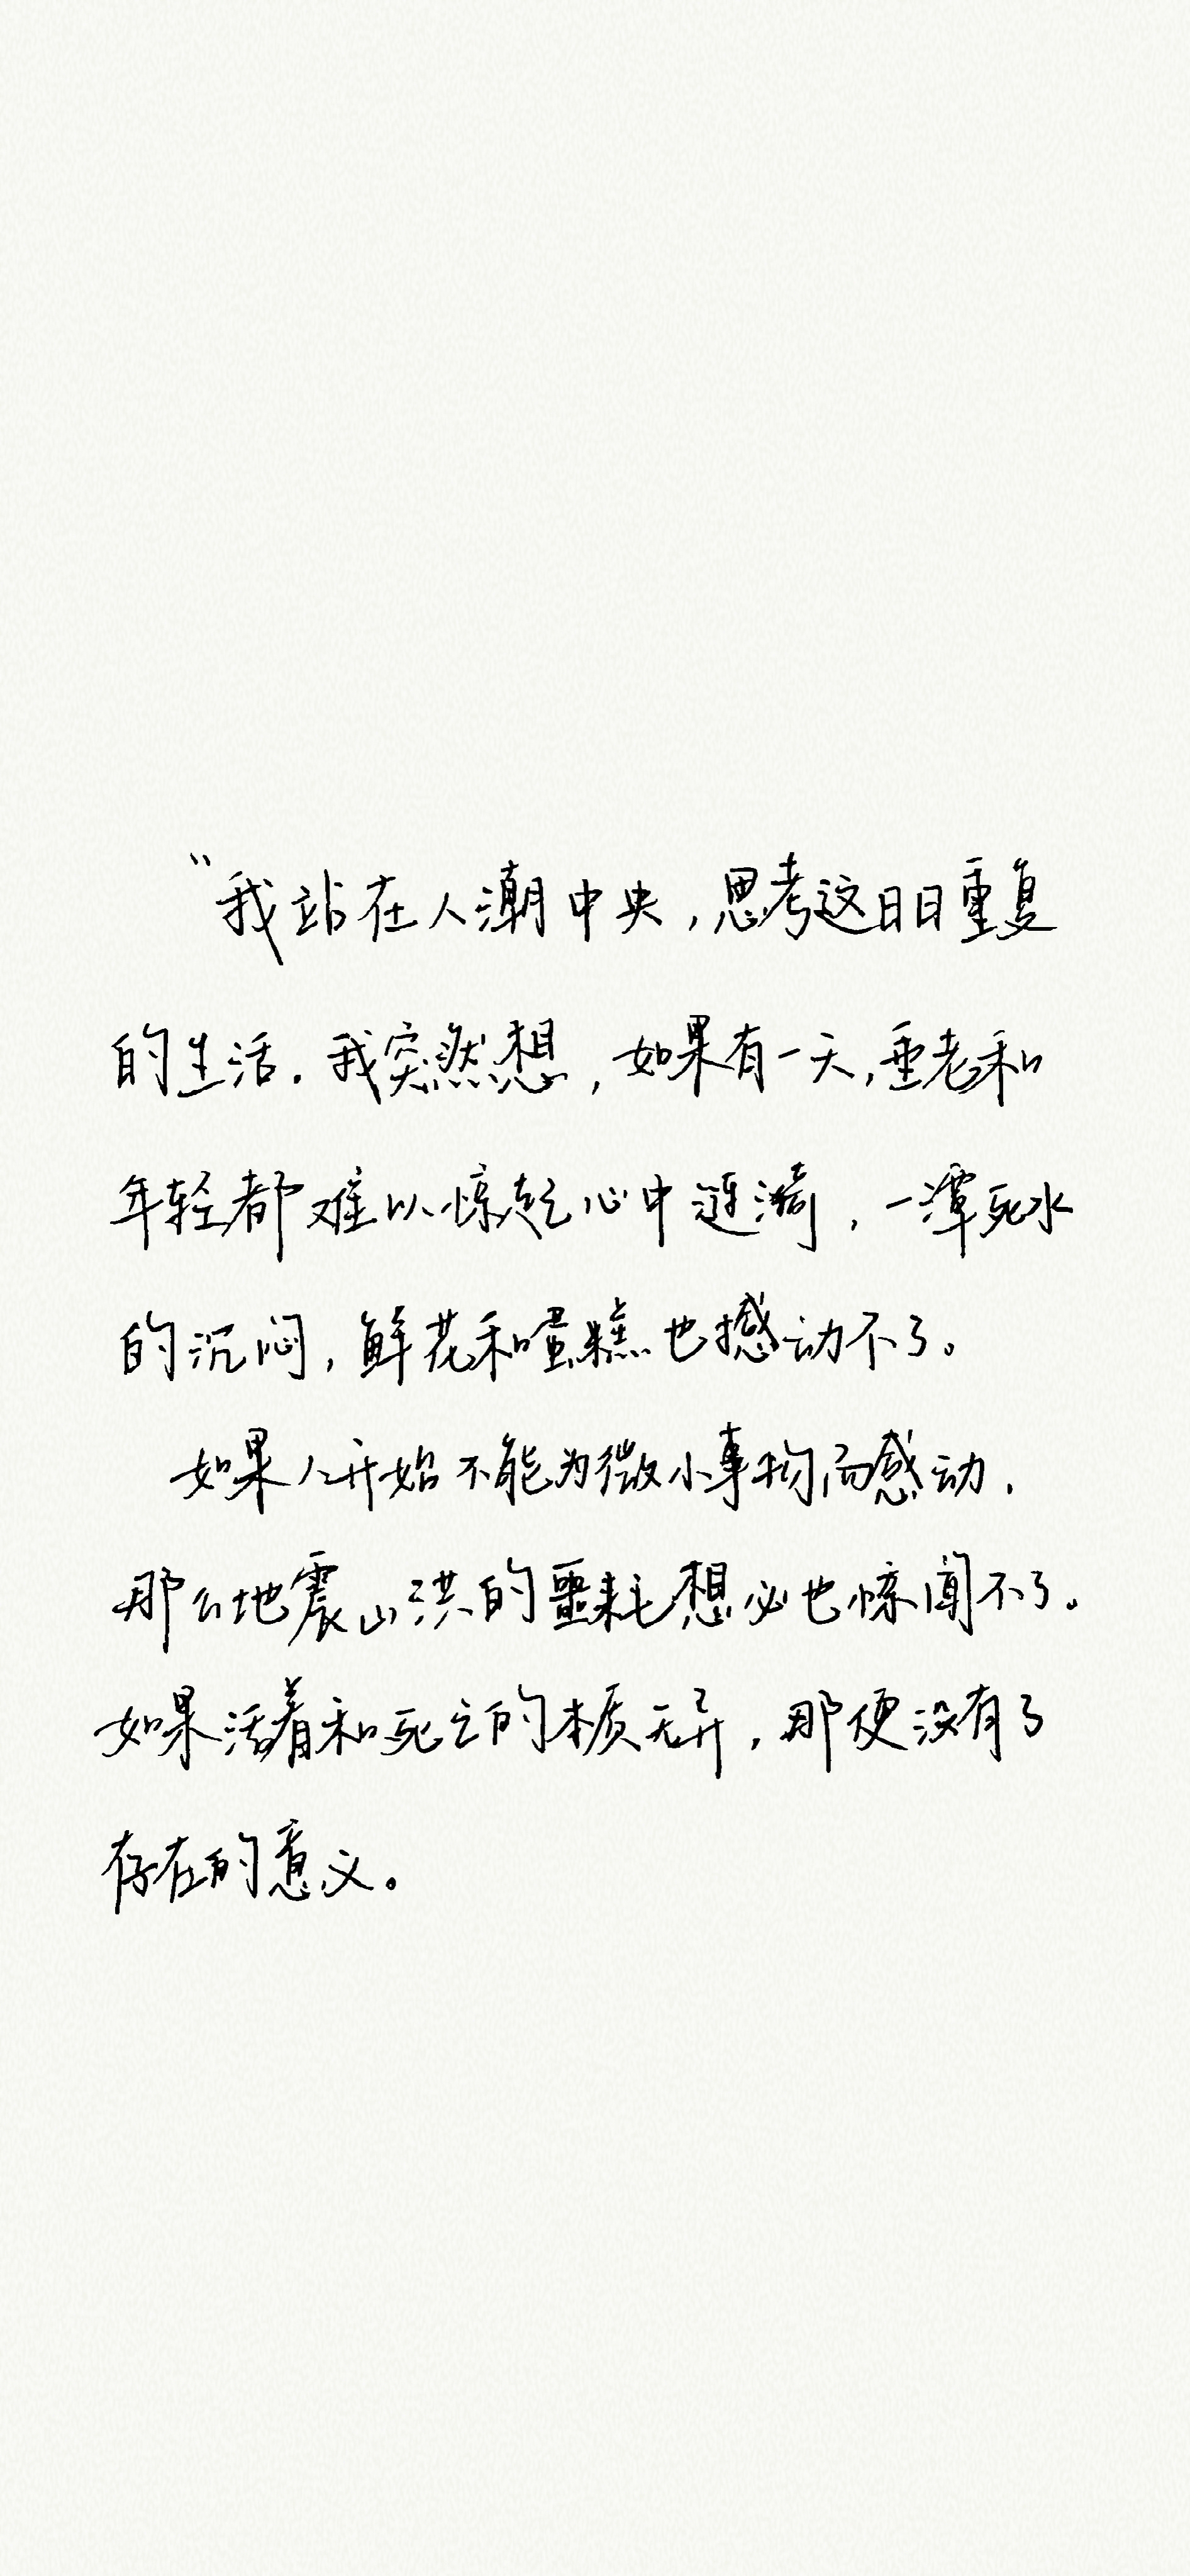 “我站在人潮中央，思考这日日重复
的生活。我突然想，如果有一天，垂老和
年轻都难以惊起心中涟漪，一潭死水
的沉闷，鲜花和蛋糕也撼动不了。
如果人开始不能为微小事物而感动，
那么地震山洪的噩耗想必也惊闻不了。
如果活着和死亡的本质无异，那便没有了
存在的意义。